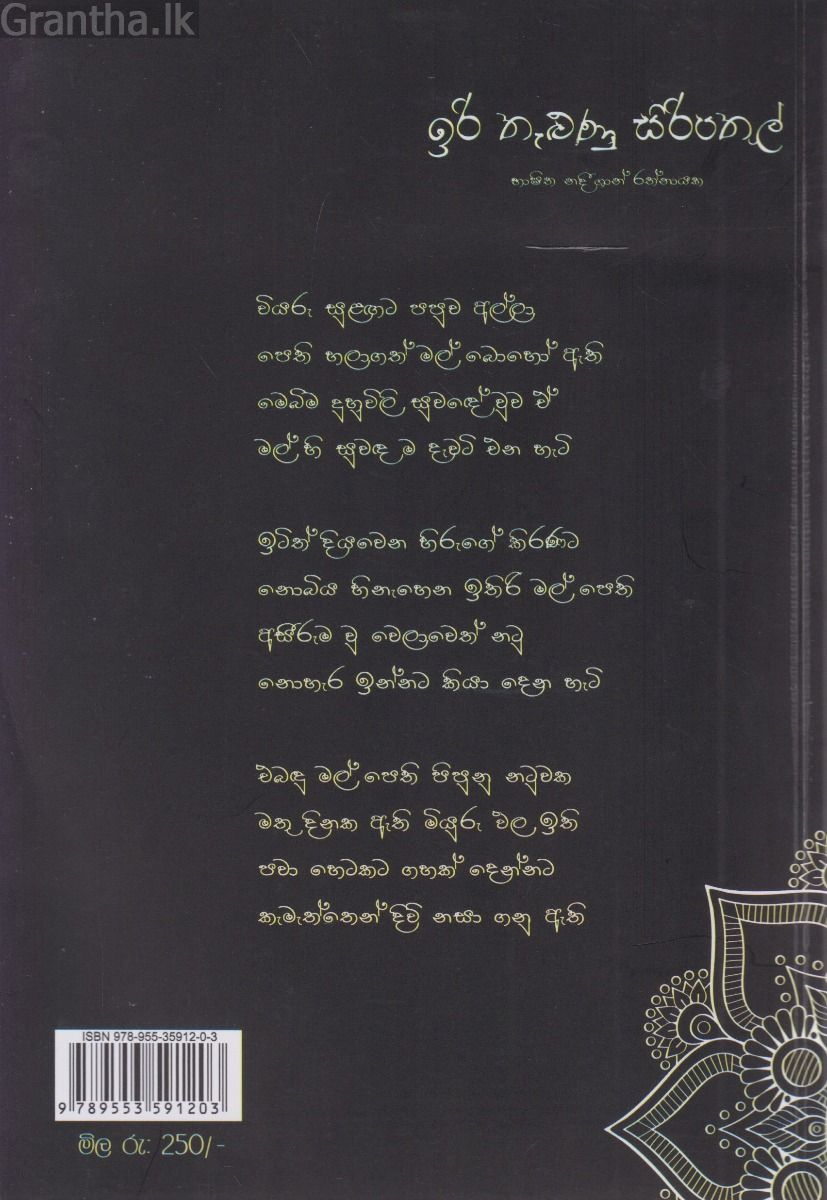 Grantha.lk
ඉරි තැළුණු සිරිපතුල්
භාෂිත නදීශාන් රත්නායක
වියරු සුළඟට පපුව අල්ලා
පෙති හලාගත් මල් බොහෝ ඇති
මෙබිම දුහුවිලි සුවඳේ වුව ඒ
මල් හි සුවඳ ම දැවටි එන හැටි
ඉටිත් දියවෙන හිරුගේ කිරණට
නොබිය හිනැහෙන ඉතිරි මල් පෙති
අසීරුම වූ වෙලාවෙත් නටු
නොහැර ඉන්නට කියා දෙන හැටි
එබඳු මල් පෙති පිපුනු නටුවක
මතු දිනක ඇති මියුරු ඵල ඉති
පවා හෙටකට ගහක් දෙන්නට
කැමැත්තෙන් දිවි නසා ගනු ඇති
ISBN 978-955-35912-0-3
9 789553 591203
මිල රු: 250/-